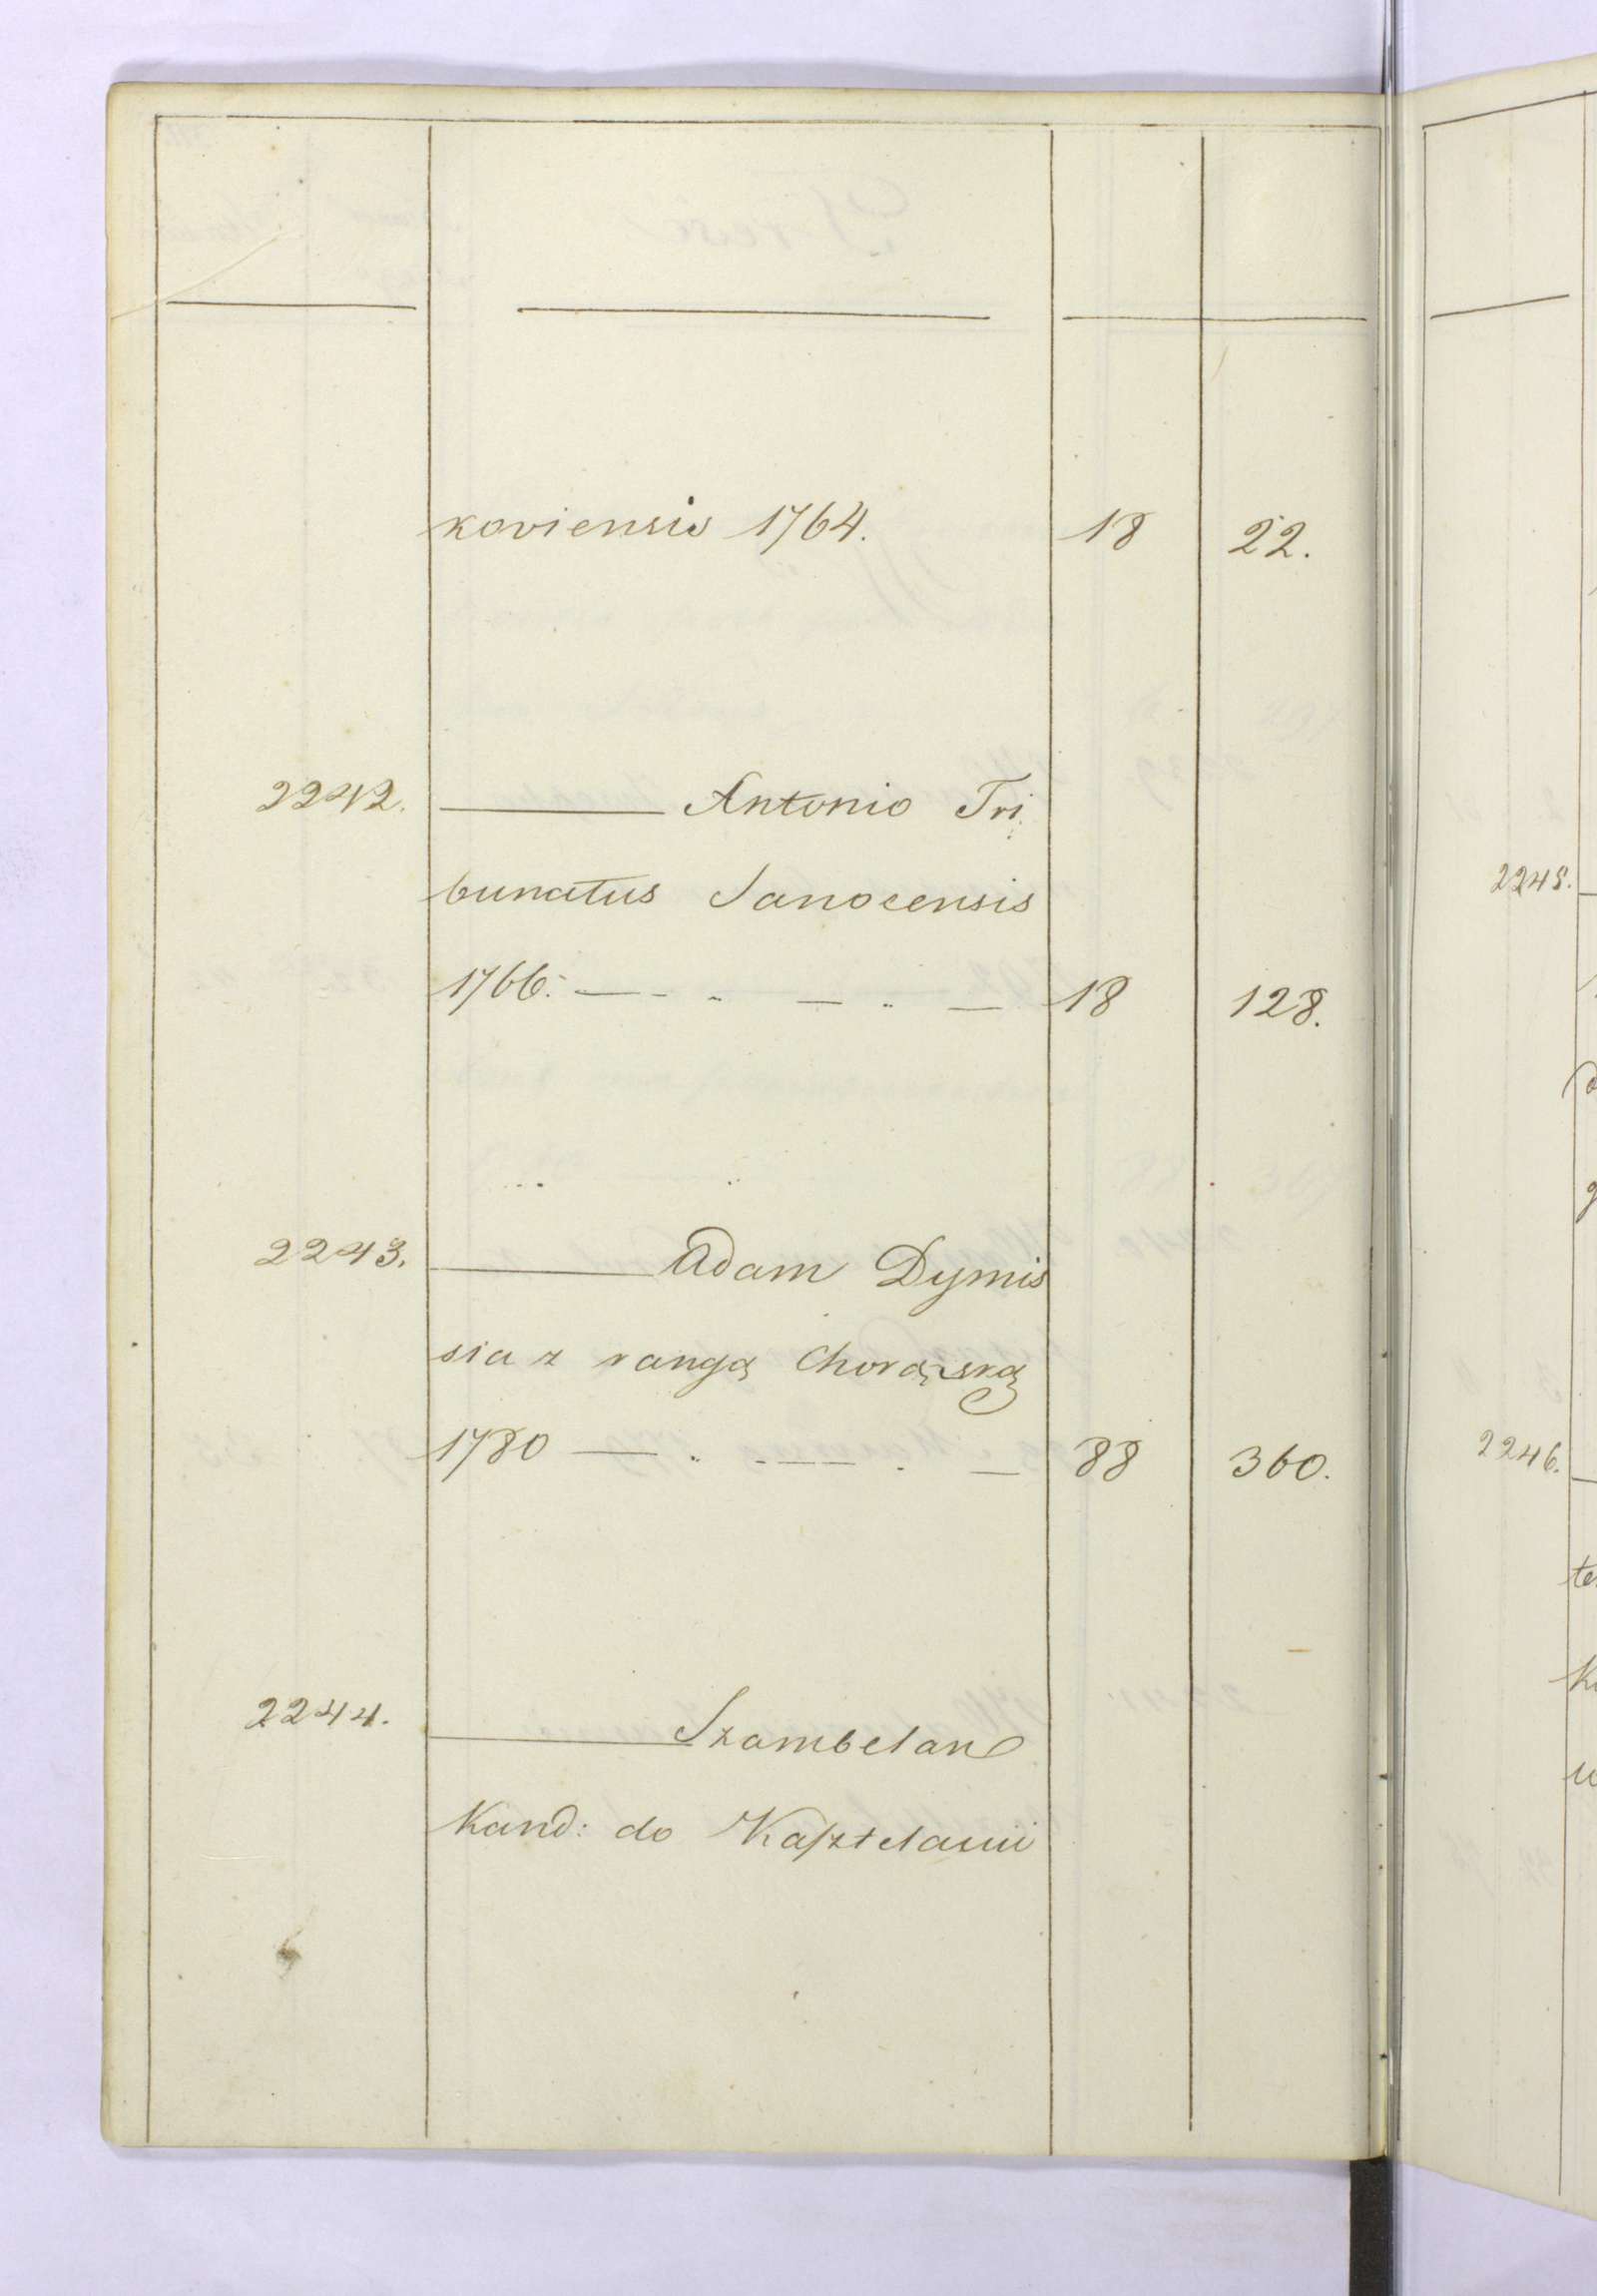 koviensis 1764. 18 22.
2242. ——— Antonio Tri
bunatus Sanocensis
1766. — - .. — .. — 18 128.
2243. ——— Adam Dymis
sia z rangą Chorąską
1780 — . - — . — 88 360.
2244. ——— Szambelan
Kand: do Kasztelanii
2245.
2246.